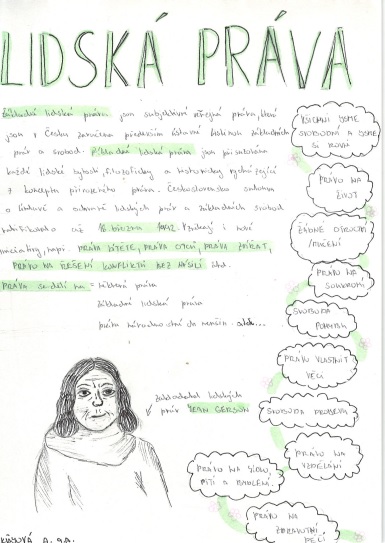 LIDSKÁ PRÁVA
Základní lidská práva jsou subjektivní veřejná práva, která
jsou v Česku zaručena především ústavní Listinou základních
práv a svobod. Základní lidská práva jsou přisuzována
každé lidské bytosti, filozoficky a historicky vycházející
z konceptu přirozeného práva. Československo
o a ochraně lidských práv a základních svobod
ratifikovalo až 18. března 1992. i nové
iniciativy, např. PRÁVA DÍTĚTE, PRÁVA OTCŮ, PRÁVA ZVÍŘAT,
PRÁVO NA ŘEŠENÍ KONFLIKTŮ BEZ NÁSILÍ atd.
PRÁVA se dělí na =
základní lidská práva
práva
zakladatel lidských
práv JEAN GERSON
VŠICHNI JSME
SVOBODNÍ A JSME
SI ROVNI
PRÁVO NA
ŽIVOT
ŽÁDNÉ OTROCTVÍ
/MUČENÍ
PRÁVO NA
SOUKROMÍ
SVOBODA
POHYBU
PRÁVO VLASTNIT
VĚCI
SVOBODA PROJEVU
PRÁVO NA
VZDĚLÁNÍ
PRÁVO NA JÍDLO,
PITÍ A BYDLENÍ.
PRÁVO NA
ZDRAVOTNÍ
PÉČI
A. 9.A.